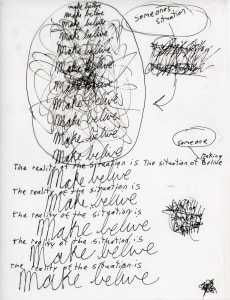 make belive
make belive
make belive
make belive
make belive
make belive
make belive
Make belive
Make belive
Make belive
Make belive
Make belive
Someones
situation
someone
making
The reality of the situation is The situation of Belive
Make belive
The reality of the situation is
Make belive
the reality of the situation is
Make belive
the reality of the situation is
Make belive
The reality of the situation is
Make belive